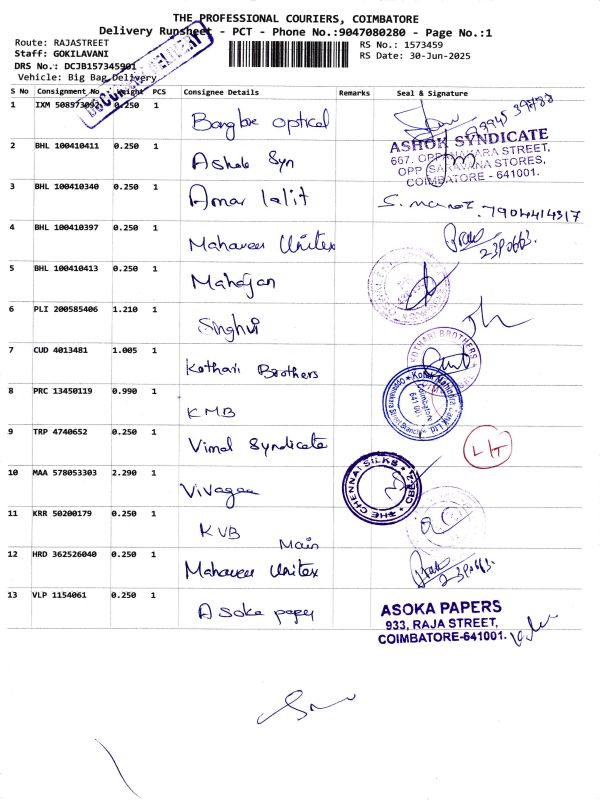 THE PROFESSIONAL COURIERS, COIMBATORE
Delivery Runsheet - PCT - Phone No.:9047080280 - Page No.:1
Route: RAJASTREET
RS No.: 1573459
Staff: GOKILAVANI
RS Date: 30-Jun-2025
DRS No.: DCJB157345901
Vehicle: Big Bag Delivery
S No Consignment No Weight PCS Consignee Details Remarks Seal & Signature
1 IXM 508973092 0.250 1 optical
2 BHL 100410411 0.250 1 Ashok Syn
ASHOK SYNDICATE
667, OPP STREET,
OPP SARAVANA STORES,
COIMBATORE - 641001.
3 BHL 100410340 0.250 1 Amar lalit 7904414317
4 BHL 100410397 0.250 1 Mahaveer Unitex
5 BHL 100410413 0.250 1 Mahajan
6 PLI 200585406 1.210 1 Singhvi
7 CUD 4013481 1.005 1 Kothari Brothers
KOTHARI BROTHERS
8 PRC 13450119 0.990 1 KMB
Kotak Mahindra
Coimbatore
641 001
9 TRP 4740652 0.250 1 Vimal Syndicate
10 MAA 578053303 2.290 1 Vivagaa
THE CHENNAI SILKS
11 KRR 50200179 0.250 1 KVB Main
12 HRD 362526040 0.250 1 Mahaveer Unitex
13 VLP 1154061 0.250 1 Asoka paper
ASOKA PAPERS
933, RAJA STREET,
COIMBATORE-641001.